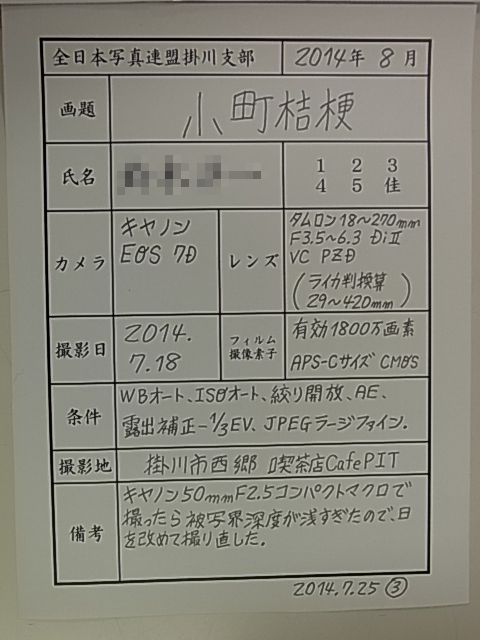 全日本写真連盟掛川支部 2014年 8月
画題 小町桔梗
氏名
1 2 3
4 5 佳
カメラ
キヤノン
EOS 7D
レンズ
タムロン18〜270mm
F3.5〜6.3 DiⅡ
VC PZD
(ライカ判換算
29〜420mm)
撮影日
2014.
7.18
フィルム
撮像素子
有効1800万画素
APS-Cサイズ CMOS
条件
WBオート、ISOオート、絞り開放、AE、
露出補正-1/3EV、JPEGラージファイン.
撮影地 掛川市西郷 喫茶店CafePIT
備考
キヤノン50mmF2.5コンパクトマクロで
撮ったら被写界深度が浅すぎたので、日
を改めて撮り直した。
2014.7.25 ③